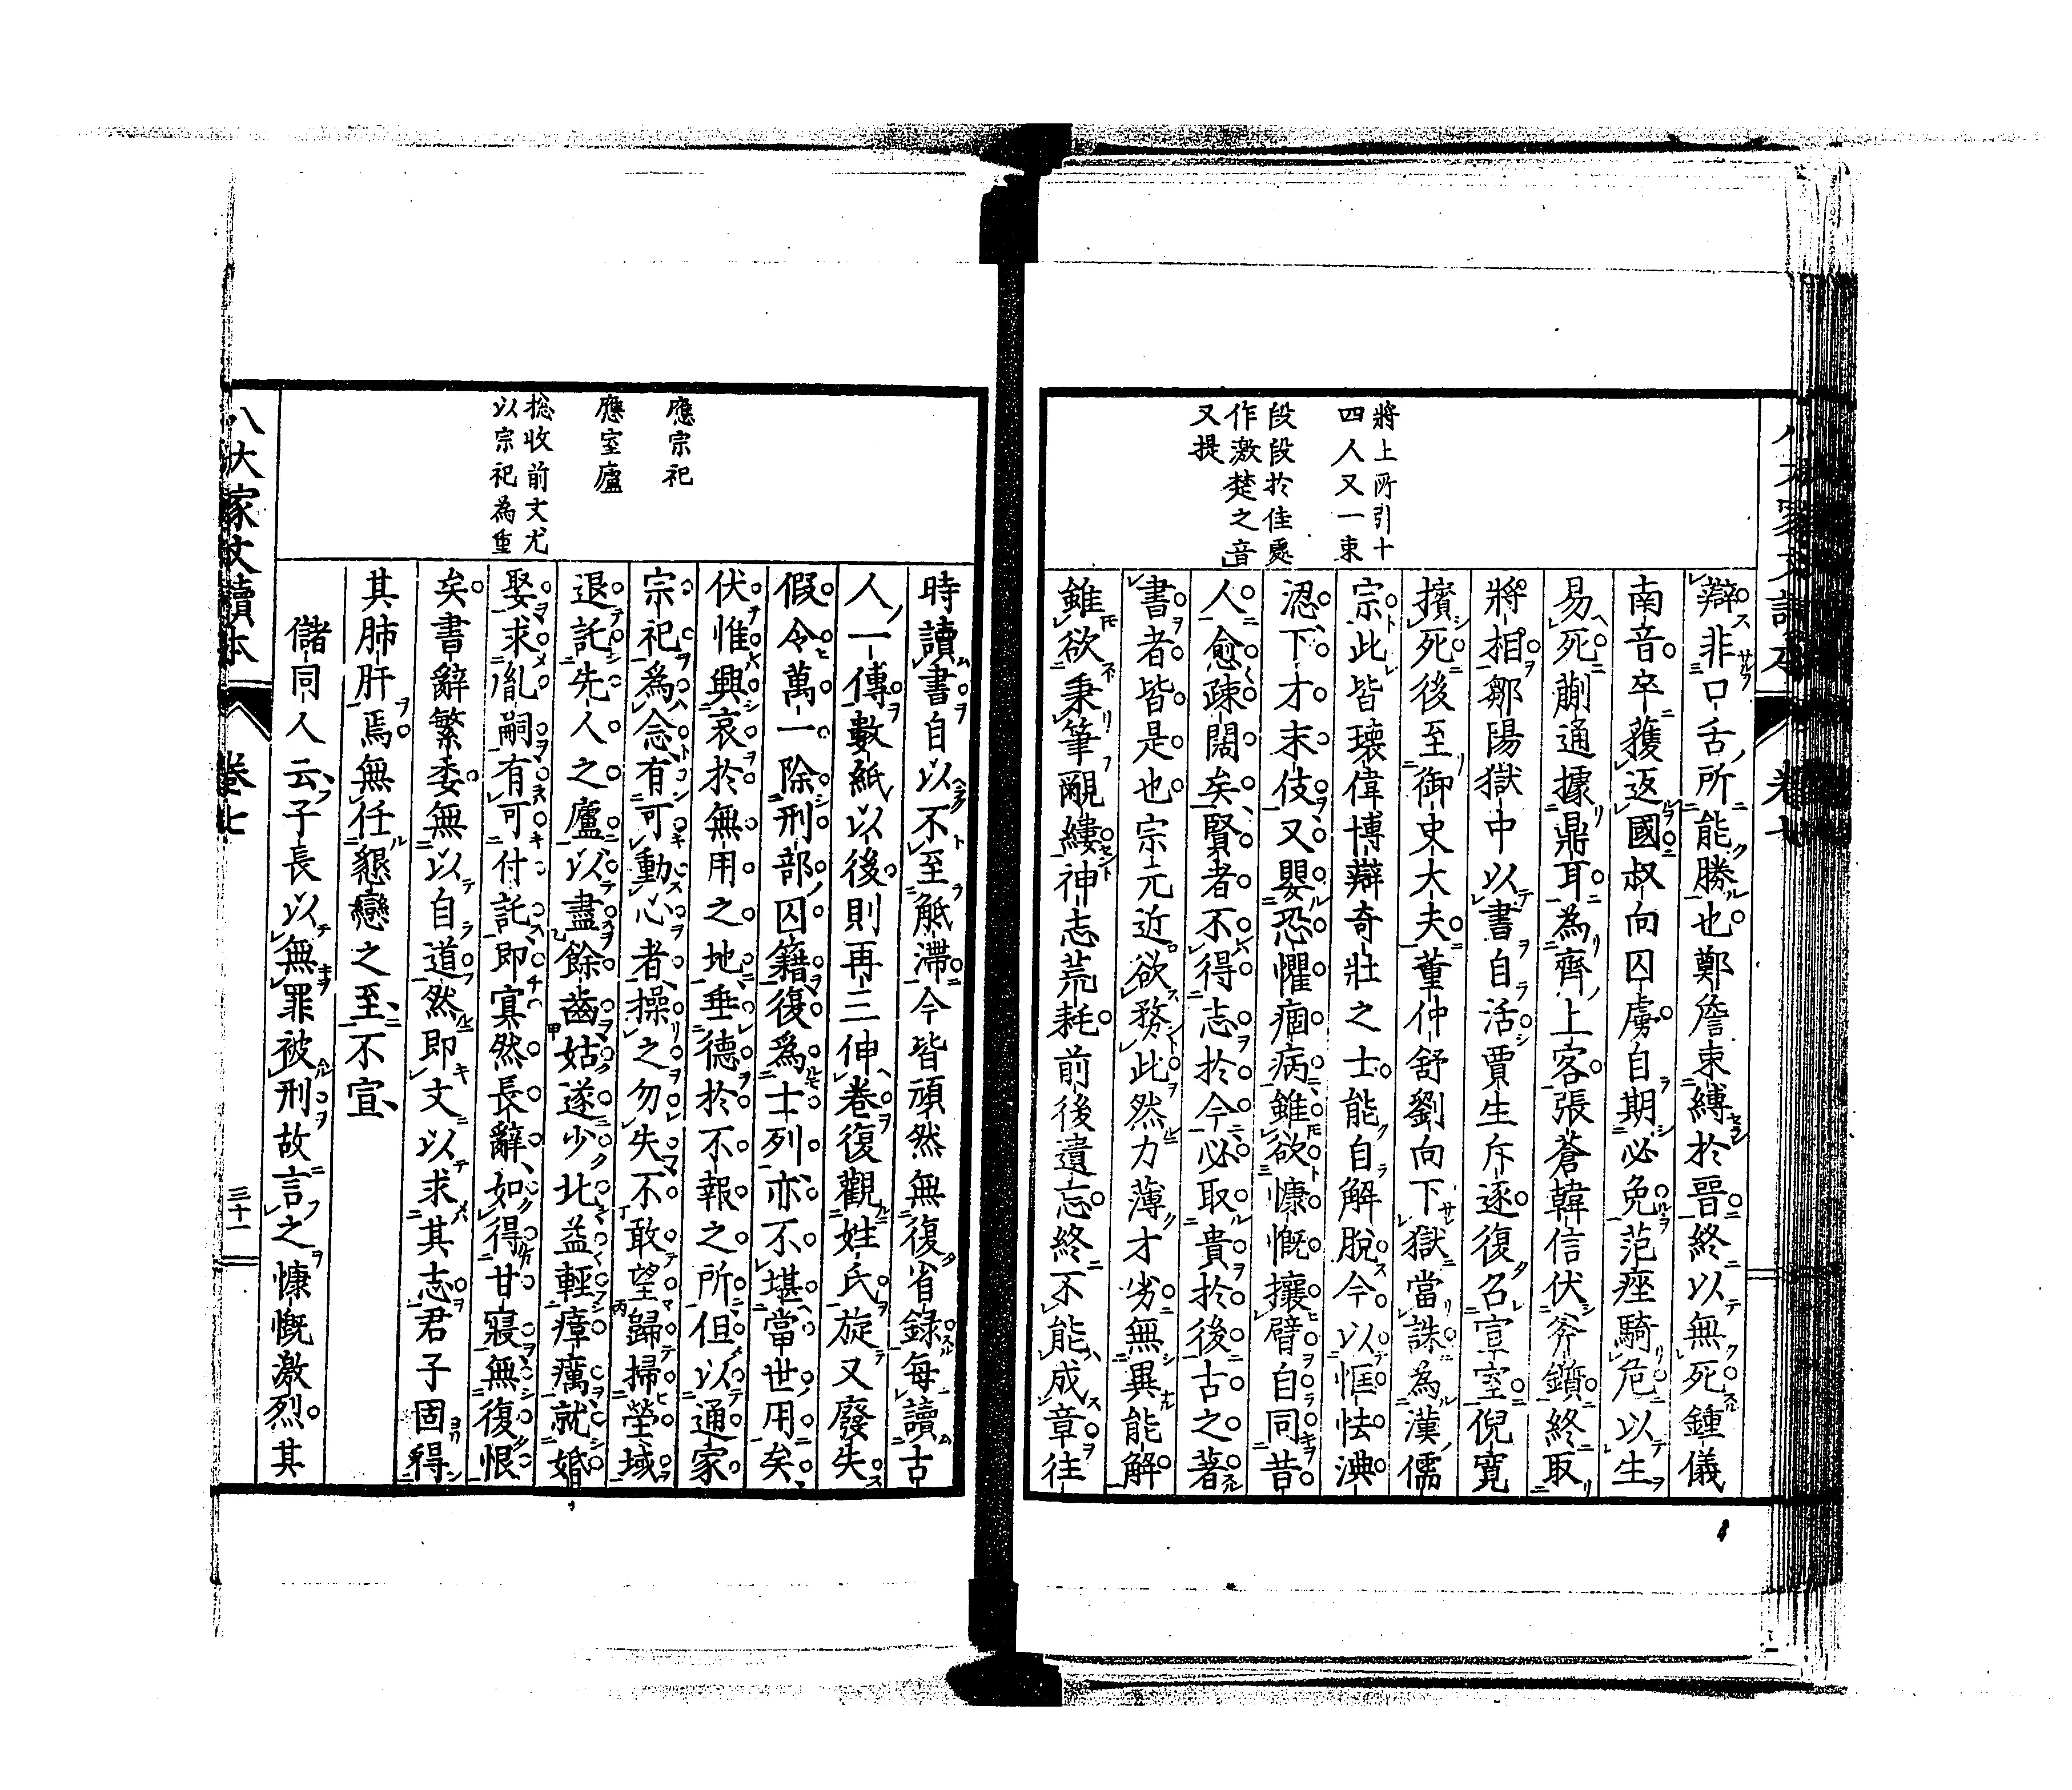 將上所引十
四人又一束
段段於佳處
作激楚之音
又提
辯非口舌所能勝也鄭詹束縛於晉終以無死鍾儀
南音卒獲返國叔向囚虜自期必免范痤騎危以生
易死蒯通據鼎耳為齊上客張蒼韓信伏斧鑕終取
將相鄒陽獄中以書自活賈生斥逐復召宣室倪寬
擯死後至御史大夫董仲舒劉向下獄當誅為漢儒
宗此皆瓌偉博辯奇壯之士能自解脫今以恇怯淟
涊下才末伎又嬰恐懼痼病雖欲慷慨攘臂自同昔
人愈疎闊矣賢者不得志於今必取貴於後古之著
書者皆是也宗元近欲務此然力薄才劣無異能解
雖欲秉筆覼縷神志荒耗前後遺忘終不能成章往
應宗祀
應室廬
捴收前文尤
以宗祀為重
時讀書自以不至觝滯今皆頑然無復省錄每讀古
人一傳數紙以後則再三伸卷復觀姓氏旋又廢失
假令萬一除刑部囚籍復爲士列亦不堪當世用矣
伏惟興哀於無用之地垂德於不報之所但以通家
宗祀為念有可動心者操之勿失不敢望歸掃塋域
退託先人之廬以盡餘齒姑遂少北益輕瘴癘就婚
娶求胤嗣有可付託即冥然長辭如得甘寢無復恨
矣書辭繁委無以自道然即文以求其志君子固得
其肺肝焉無任懇戀之至不宣
儲同人云子長以無罪被刑故言之慷慨激烈其
八大家文讀本 卷七 三十一